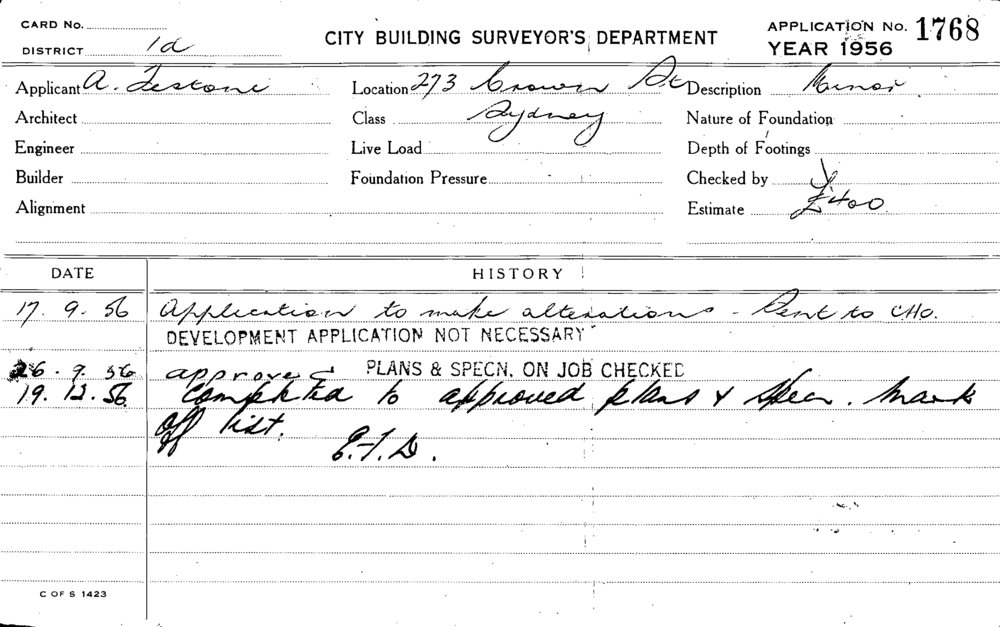 CARD No.
DISTRICT 1d
CITY BUILDING SURVEYOR'S DEPARTMENT
APPLICATION No. 1768
YEAR 1956
Applicant A. Testoni Location 273 Crown St Description Minor
Architect Class Sydney Nature of Foundation
Engineer Live Load Depth of Footings
Builder Foundation Pressure Checked by
Alignment Estimate £400
DATE HISTORY
17. 9. 56 Application to make alterations - Sent to CHO.
DEVELOPMENT APPLICATION NOT NECESSARY
26. 9. 56 approved PLANS & SPECN. ON JOB CHECKED
19. 12. 56 Completed to approved plans & Specn. Mark
off list.
E.T.D.
C OF S 1423